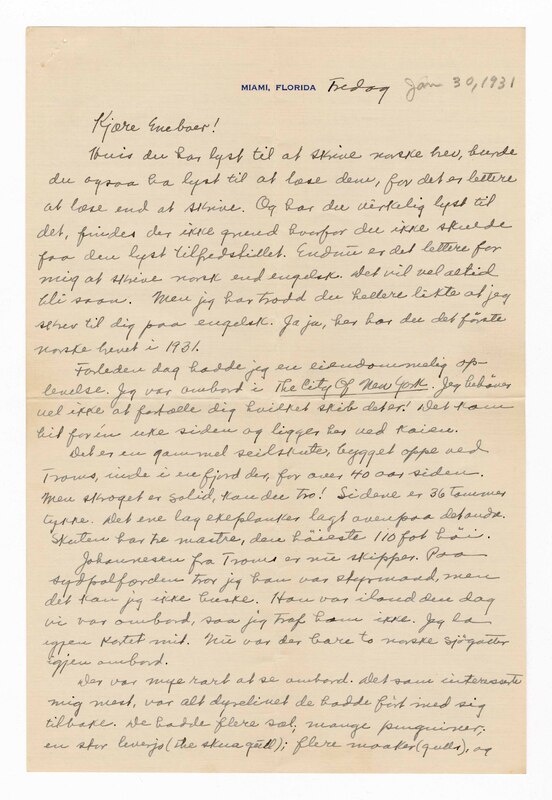 MIAMI, FLORIDA Fredag Jan 30, 1931
Kjære Eneboer!
Hvis du har lyst til at skrive norske brev, burde
du ogsaa ha lyst til at læse dem, for det er lettere
at læse end at skrive. Og har du virkelig lyst til
det, findes der ikke grund hvorfor du ikke skulde
faa den lyst tilfredstillet. Endnu er det lettere for
mig at skrive norsk end engelsk. Det vil vel altid
bli saan. Men jeg har trodd du hellere likte at jeg
skrev til dig paa engelsk. Ja ja, her har du det første
norske brevet i 1931.
Forleden dag hadde jeg en eiendommelig op-
levelse. Jeg var ombord i The City Of New York. Jeg behøver
vel ikke at fortælle dig hvilket skib det er! Det kom
hit for én uke siden og ligger her ved kaien.
Det er en gammel seilskute, bygget oppe ved
Troms, inde i en fjord der, for over 40 aar siden.
Men skroget er solid, kan du tro! Sidene er 36 tommer
tykke. Det ene lag ekeplanker lagt ovenpaa det andre.
Skuten har tre mastre, den høieste 110 fot høi.
Johannesen fra Troms er nu skipper. Paa
sydpolfærden tror jeg han var styrmand, men
det kan jeg ikke huske. Han var iland den dag
vi var ombord, saa jeg traf ham ikke. Jeg la
igjen kortet mit. Nu var der bare to norske sjøgutter
igjen ombord.
Der var mye rart at se ombord. Det som interesserte
mig mest, var alt dyrelivet de hadde ført med sig
tilbake. De hadde flere sæl, mange pinguiner,
en stor (the skua gull); flere maaker (gulls), og